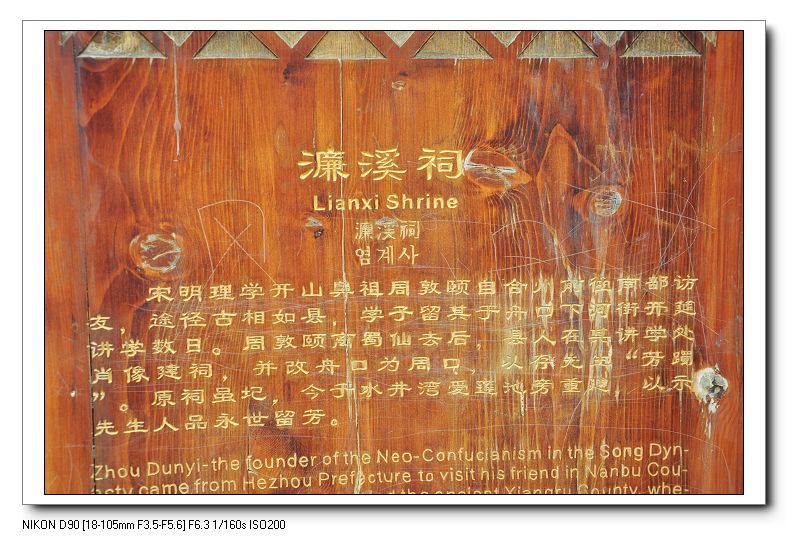 濂溪祠
Lianxi Shrine
濂溪祠
염계사
宋明理学开山鼻祖周敦颐自合州前往南部访
友，途径古相如县，学子留其于舟口下河街开筵
讲学数日。周敦颐离蜀仙去后，县人在其讲学处
肖像建祠，并改舟口为周口，以存先贤“芳躅
”。原祠虽圮，今于水井湾爱莲池旁重建，以示
先生人品永世留芳。
Zhou Dunyi-the founder of the Neo-Confucianism in the Song Dyn-
asty came from Hezhou Prefecture to visit his friend in Nanbu Cou-
the ancient Xiangru County, whe-
NIKON D90 [18-105mm F3.5-F5.6] F6.3 1/160s ISO200